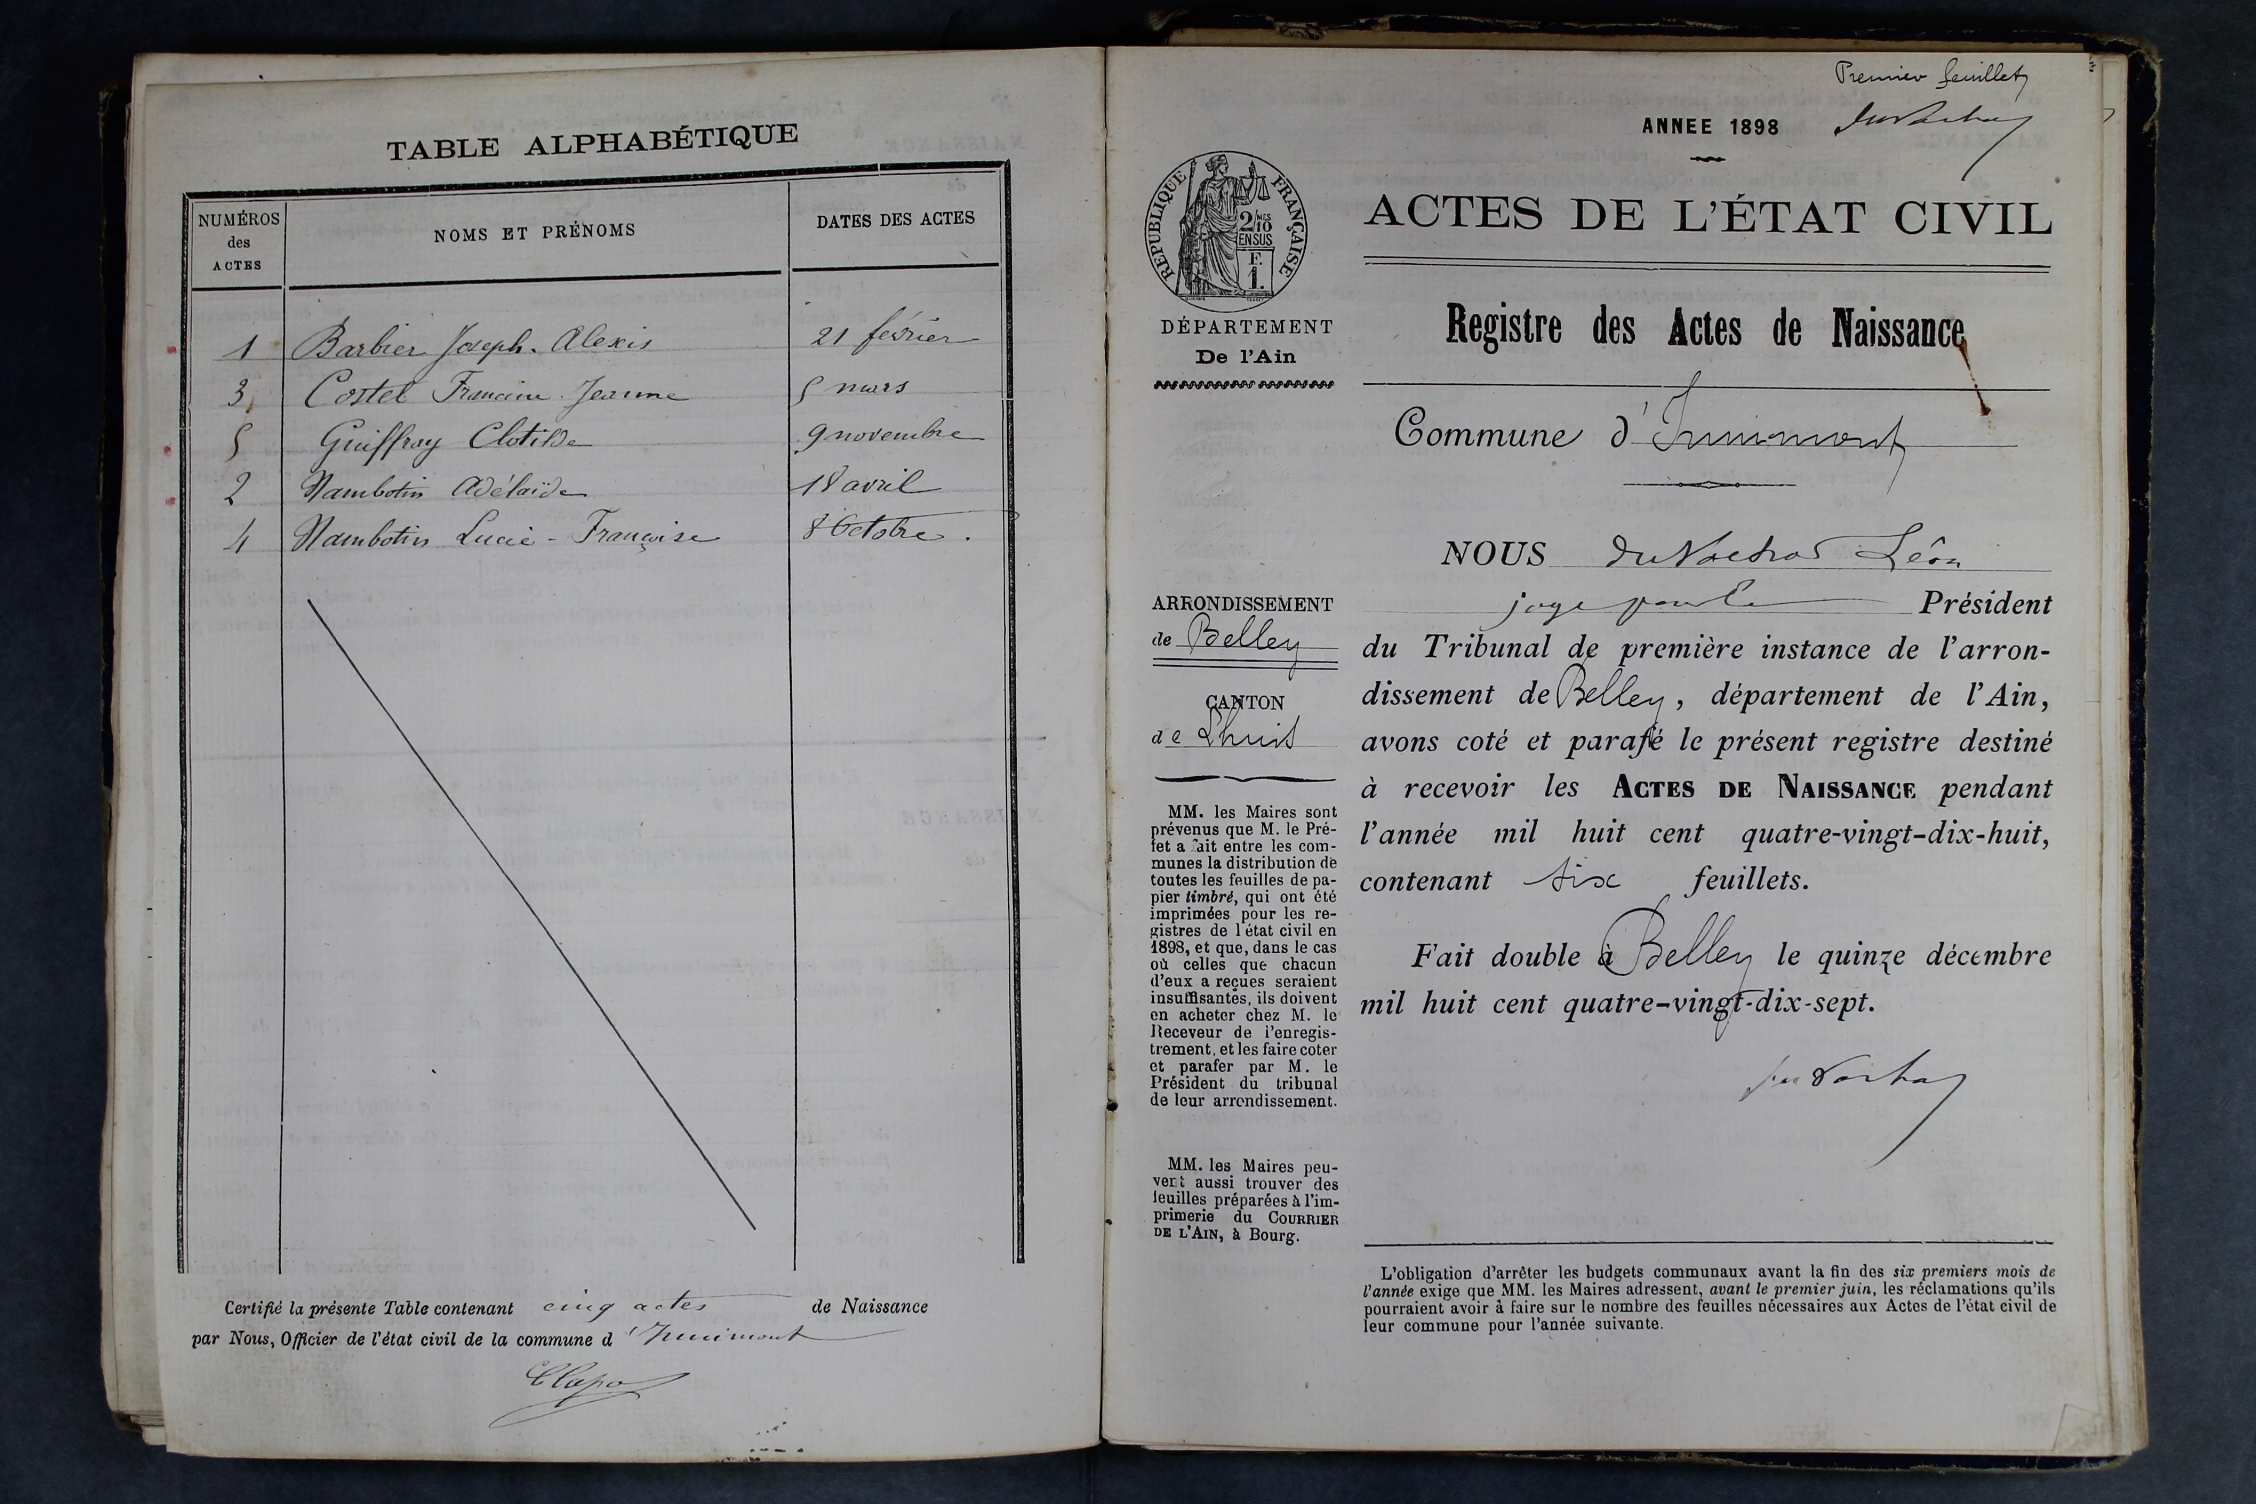 TABLE ALPHABÉTIQUE
NUMÉROS des ACTES
NOMS ET PRÉNOMS
DATES DES ACTES
1 Barbier Joseph. Alexis 21 février
3 Costel Francine Jeanne 5 mars
5 Guiffray Clotilde 9 novembre
2 Nambotin Adélaïde 18 avril
4 Nambotin Lucie-Françoise 8 Octobre.
Certifié la présente Table contenant cinq actes de Naissance
par Nous, Officier de l'état civil de la commune d'Innimont
Premier feuillet
ANNEE 1898
RÉPUBLIQUE FRANÇAISE
2/10 MES
EN SUS
F.
1.
ACTES DE L'ÉTAT CIVIL
DÉPARTEMENT
De l'Ain
Registre des Actes de Naissance
Commune d'Innimont
ARRONDISSEMENT
de Belley
CANTON
de Lhuis
MM. les Maires sont
prévenus que M. le Pré-
fet a fait entre les com-
munes la distribution de
toutes les feuilles de pa-
pier timbré, qui ont été
imprimées pour les re-
gistres de l'état civil en
1898, et que, dans le cas
où celles que chacun
d'eux a reçues seraient
insuffisantes, ils doivent
en acheter chez M. le
Receveur de l'enregis-
trement, et les faire coter
et parafer par M. le
Président du tribunal
de leur arrondissement.
MM. les Maires peu-
vent aussi trouver des
feuilles préparées à l'im-
primerie du COURRIER
DE L'AIN, à Bourg.
NOUS Léon
juge pour le Président
du Tribunal de première instance de l'arron-
dissement de Belley, département de l'Ain,
avons coté et parafé le présent registre destiné
à recevoir les ACTES DE NAISSANCE pendant
l'année mil huit cent quatre-vingt-dix-huit,
contenant six feuillets.
Fait double à Belley le quinze décembre
mil huit cent quatre-vingt-dix-sept.
L'obligation d'arrêter les budgets communaux avant la fin des six premiers mois de
l'année exige que MM. les Maires adressent, avant le premier juin, les réclamations qu'ils
pourraient avoir à faire sur le nombre des feuilles nécessaires aux Actes de l'état civil de
leur commune pour l'année suivante.